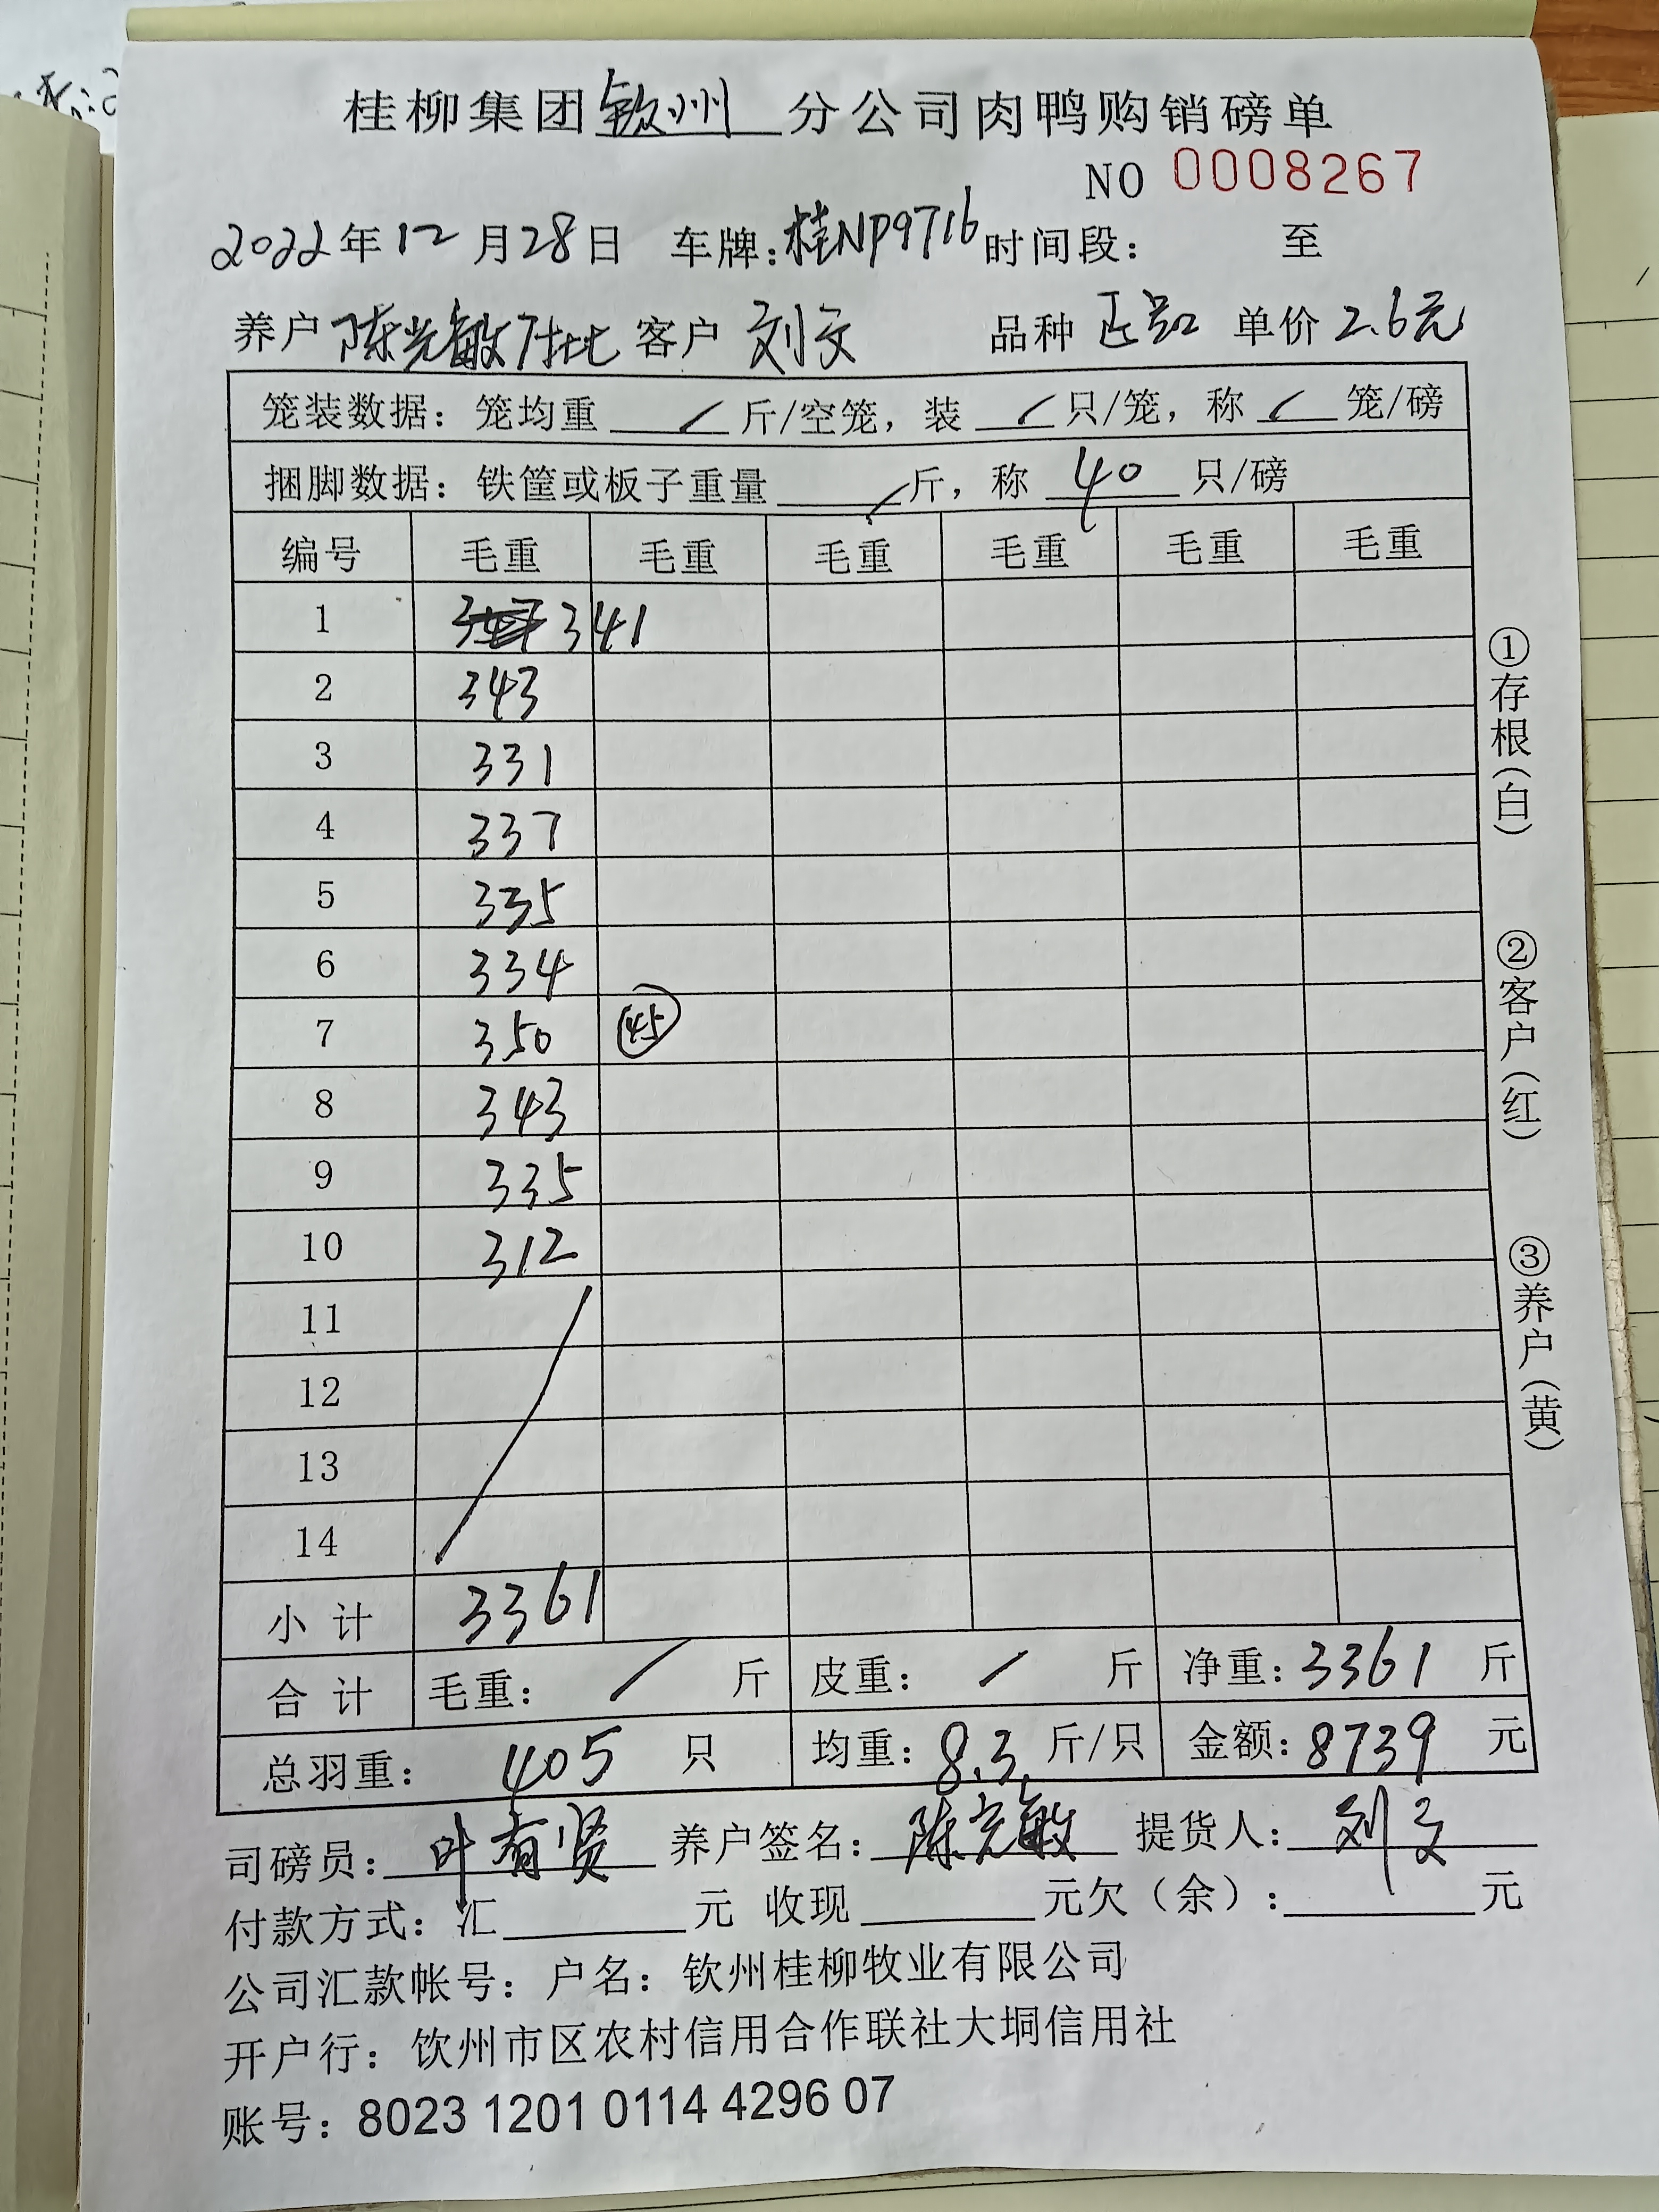 桂柳集团钦州分公司肉鸭购销磅单
NO 0008267
2022年12月28日 车牌:桂NP9716时间段: 至
养户 陈光敏7批 客户 刘文 品种 正品 单价 2.6元
笼装数据:笼均重 / 斤/空笼,装 / 只/笼,称 / 笼/磅
捆脚数据:铁筐或板子重量 / 斤,称 40 只/磅
编号 毛重 毛重 毛重 毛重 毛重 毛重
1 341
2 343
3 331
4 337
5 335
6 334
7 350 45
8 343
9 335
10 312
11
12
13
14
小计 3361
合计 毛重: / 斤 皮重: / 斤 净重:3361 斤
总羽重: 405 只 均重:8.3 斤/只 金额:8739 元
司磅员:叶有贤 养户签名:陈光敏 提货人:刘文
付款方式:汇 元 收现 元欠(余): 元
公司汇款帐号:户名:钦州桂柳牧业有限公司
开户行:钦州市区农村信用合作联社大垌信用社
账号:8023 1201 0114 4296 07
①存根(白)
②客户(红)
③养户(黄)